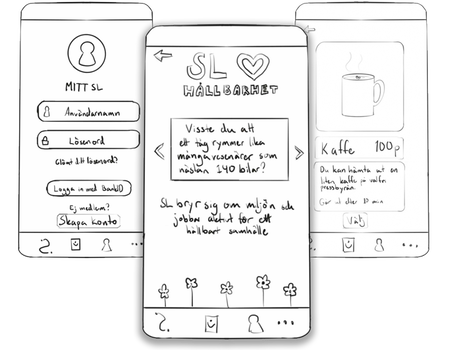 MITT SL
Användarnamn
Lösenord
Glömt ditt lösenord?
Logga in med BankID
Ej medlem?
Skapa konto
SL
HÅLLBARHET
Visste du att
ett tåg rymmer lika
många resenärer som
nästan 140 bilar?
SL bryr sig om miljön och
jobbar aktivt för ett
hållbart samhälle
Kaffe 100p
Du kan hämta ut en
liten kaffe på valfri
pressbyrån.
Går ut efter 10 min
Välj